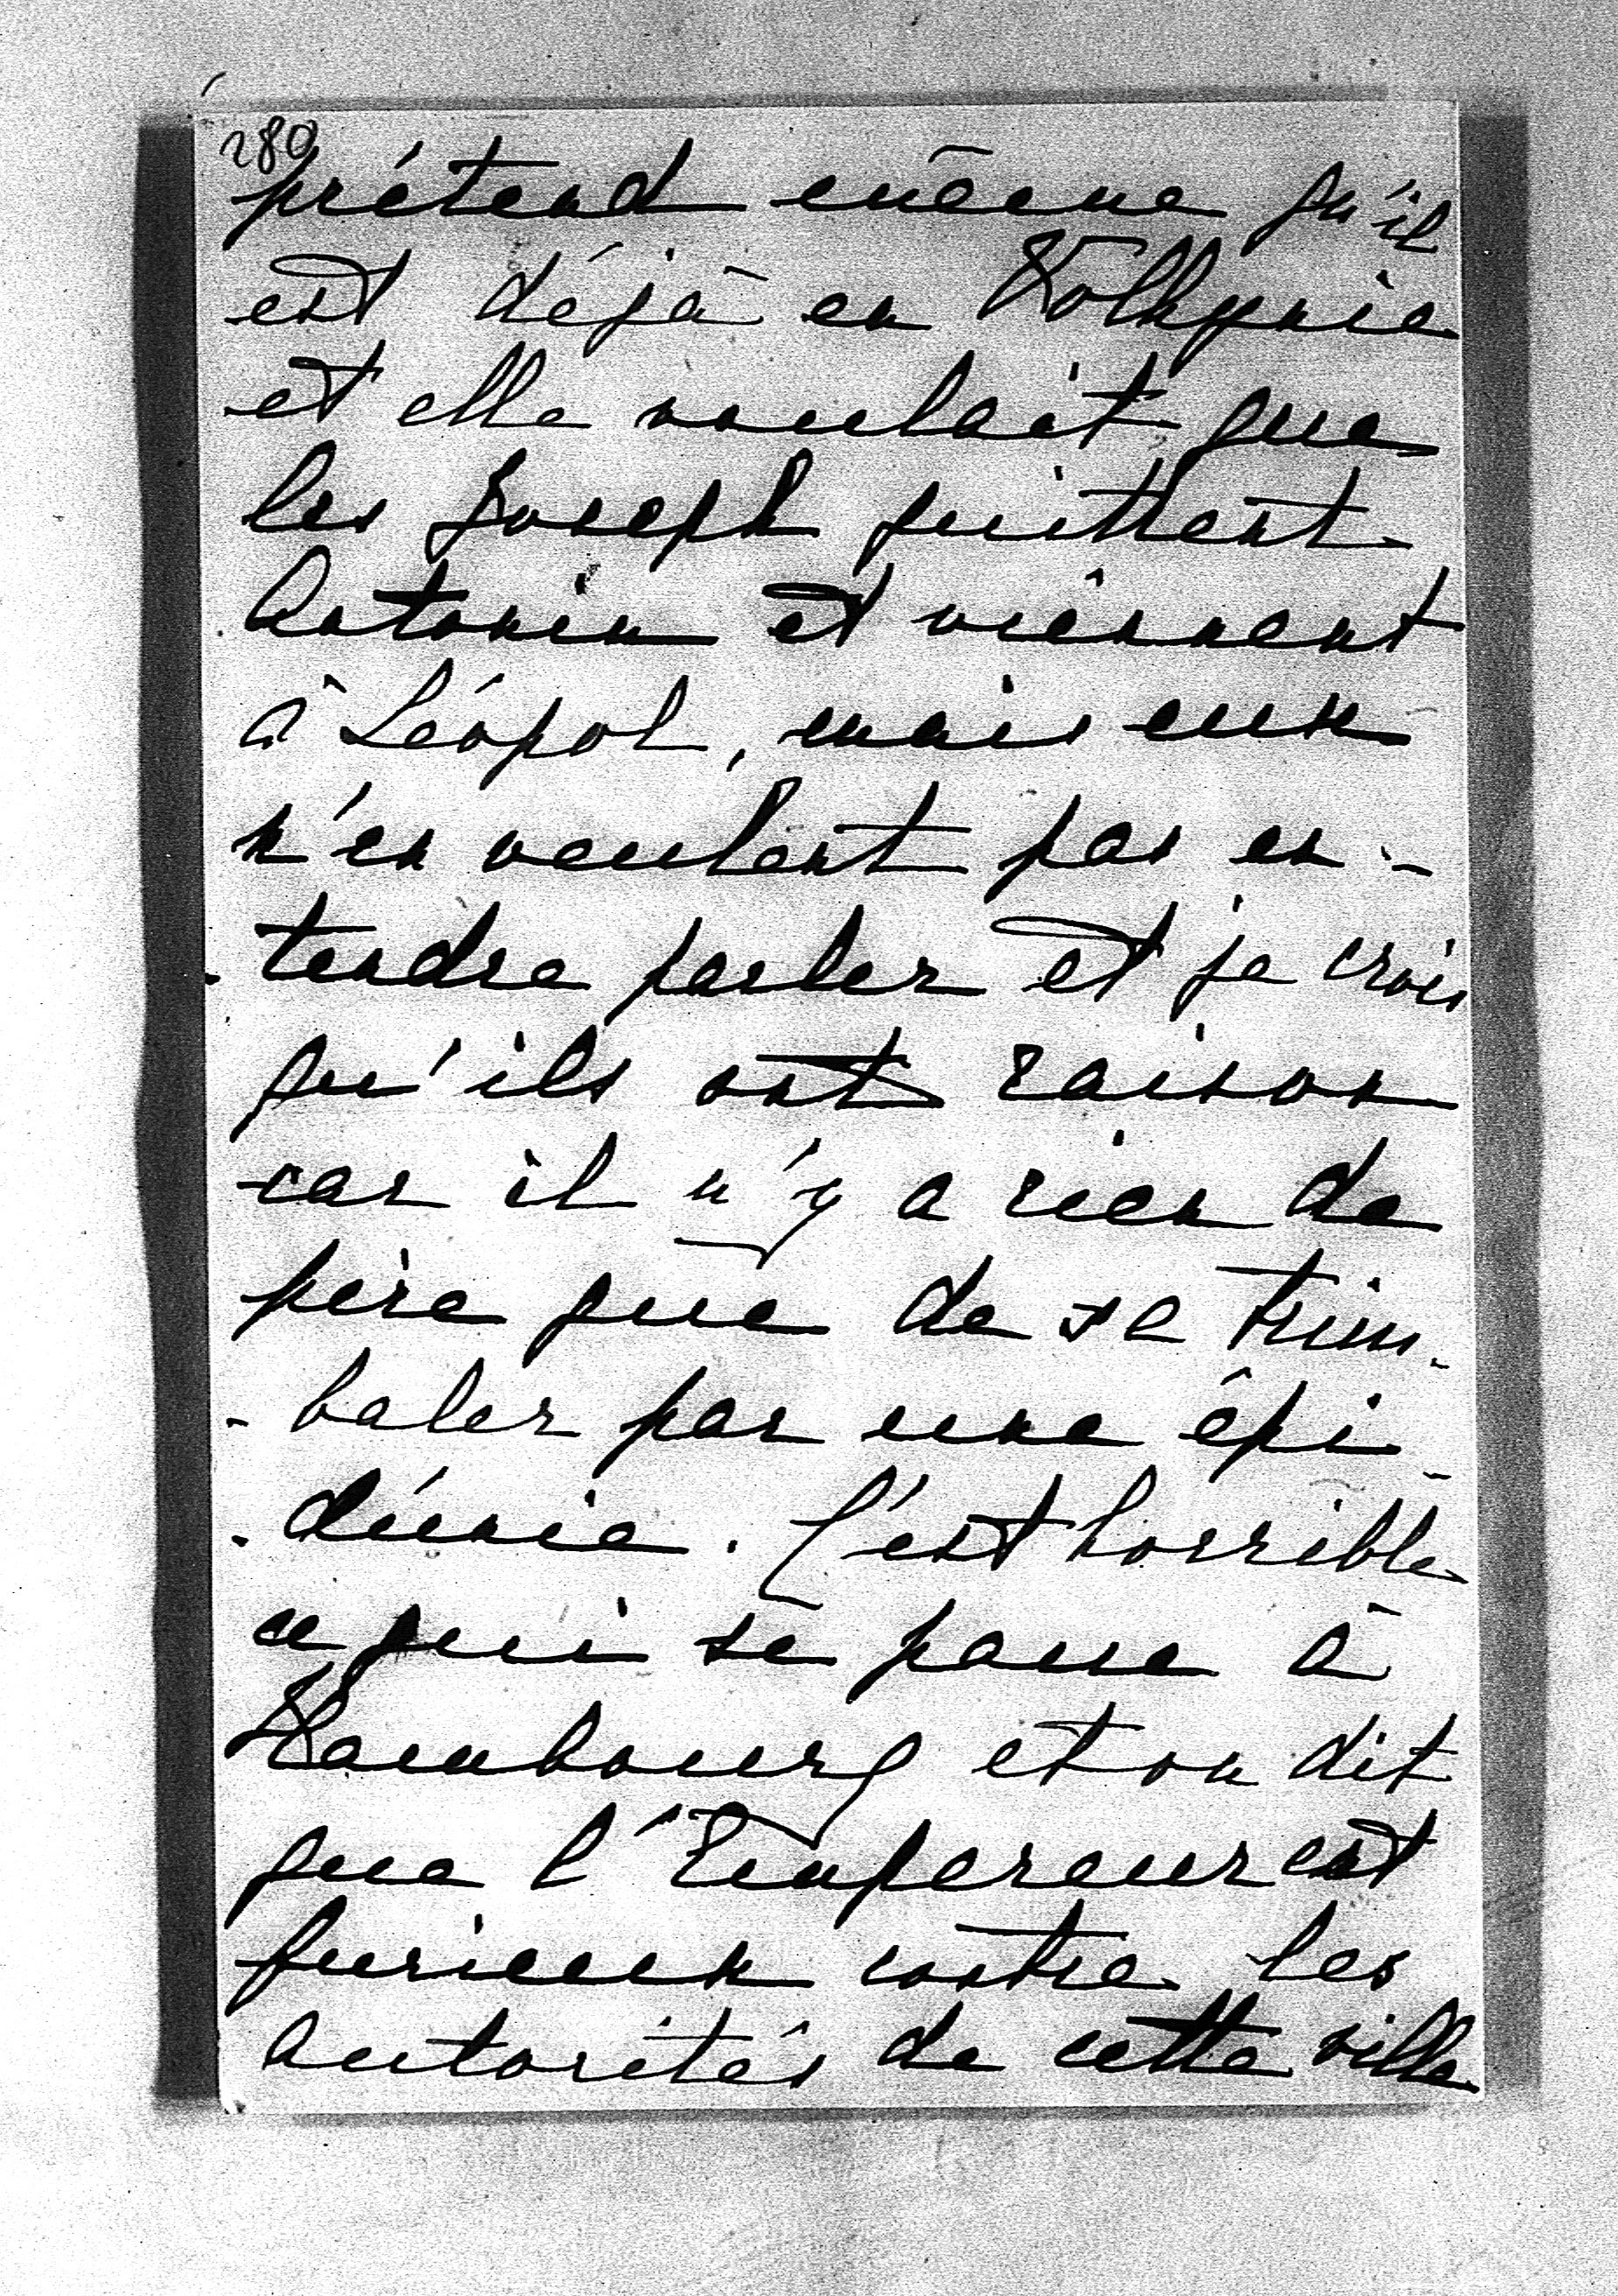 280
prétend même qu'il
est déjà en Volhynie
et elle voulait que
les Joseph quittent
Antonin et viennent
à Léopol, mais eux
n'en veulent pas en-
-tendre parler et je crois
qu'ils ont raison
car il n'y a rien de
pire que de se trim-
-baler par une épi-
-démie. C'est horrible
ce qui se passe à
Hambourg et on dit
que l'Empereur est
furieux contre les
autorités de cette ville